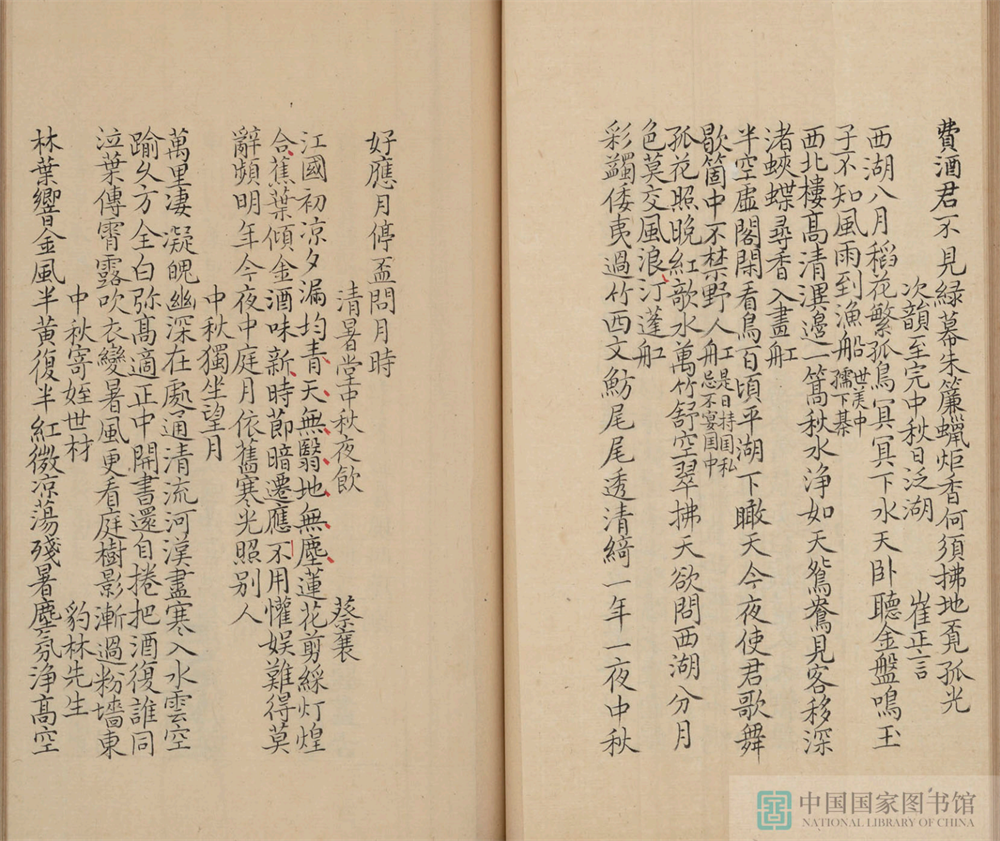 費酒君不見綠幕朱簾蠟炬香何須拂地覔孤光
次韻至完中秋日泛湖 崔正言
西湖八月稻花繁孤鳥冥冥下水天卧聽金盤鳴玉
子不知風雨到漁船世美中孺下棊
西北樓高清淏邊一篙秋水浄如天鴛鴦見客移深
渚蛺蝶尋香入畫舡
半空虛閣閑看鳥百頃平湖下瞰天今夜使君歌舞
歇箇中不禁野人舡是日持国私忌不宴国中
孤花照晚紅歌水萬竹舒空翠拂天欲問西湖分月
色莫交風浪汀蓬舡
彩鷁倭夷過竹西文魴尾尾透清綺一年一夜中秋
好應月停盃問月時
清暑堂中秋夜飲 蔡襄
江國初涼夕漏均青天無翳地無塵蓮花剪綵灯煌
合蕉葉傾金酒味新時節暗遷應不用懽娱難得莫
辭頻明年今夜中庭月依舊寒光照别人
中秋獨坐望月
萬里凄凝魄幽深在處通清流河漢盡寒入水雲空
踰久方全白弥高適正中開書還自捲把酒復誰同
泣葉傳霄露吹衣變暑風更看庭樹影漸過粉墻東
中秋寄姪世材 豹林先生
林葉響金風半黄復半紅微涼蕩殘暑塵氛浄高空
中国国家图书馆
NATIONAL LIBRARY OF CHINA